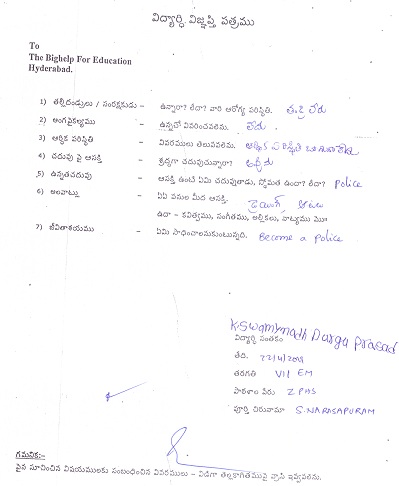 విద్యార్ధి విజ్ఞప్తి పత్రము
To
The Bighelp For Education
Hyderabad.
1) తల్లిదండ్రులు / సంరక్షకుడు – ఉన్నారా? లేదా? వారి ఆరోగ్య పరిస్థితి. తండ్రి లేరు
2) అంగవైకల్యము – ఉన్నచో వివరించవలెను. లేదు
3) ఆర్థిక పరిస్థితి – వివరములు తెలుపవలెను. ఆర్థిక పరిస్థితి
4) చదువు పై ఆసక్తి – శ్రద్ధగా చదువుచున్నారా?
5) ఉన్నతచదువు – ఆసక్తి ఉంటే ఏమి చదువుతాడు, స్తోమత ఉందా? లేదా? Police
6) అలవాట్లు – ఏఏ పనుల మీద ఆసక్తి. డ్రాయింగ్ ఆటలు
ఉదా – కవిత్వము, సంగీతము, అల్లికలు, నాట్యము మొ
7) జీవితాశయము – ఏమి సాధించాలనుకుంటున్నది. Become a police
K.Swamynadh Durga Prasad
విద్యార్ధి సంతకం
తేది. 22/4/2018
తరగతి VII EM
పాఠశాల పేరు ZPHS
పూర్తి చిరునామా S.NARASAPURAM
గమనిక:-
పైన సూచించిన విషయములకు సంబంధించిన వివరములు – విడిగా తెల్లకాగితముపై వ్రాసి ఇవ్వవలెను.